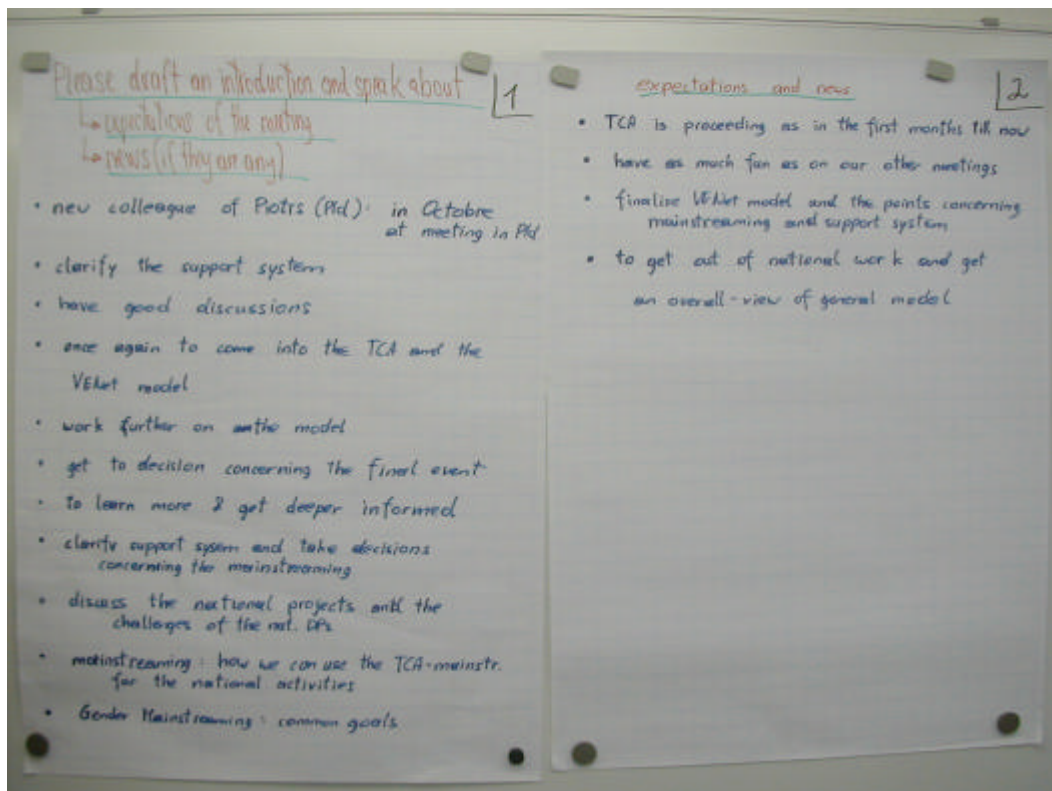 Please draft an introduction and speak about
↳ expectations of the meeting
↳ news (if they are any)
1
• new colleague of Piotrs (Pld). in Octobre
at meeting in Pld
• clarify the support system
• have good discussions
• once again to come into the TCA and the
VENet model
• work further on the model
• get to decision concerning the final event
• to learn more & get deeper informed
• clarify support sysem and take decisions
concerning the mainstreaming
• discuss the national projects and the
challeges of the nat. DPs
• mainstreaming : how we can use the TCA-mainstr.
for the national activities
• Gender Mainstreaming : common goals
expectations and news
2
• TCA is proceeding as in the first months till now
• have as much fun as on our other meetings
• finalise VENet model and the points concerning
mainstreaming and support system
• to get out of national work and get
an overall-view of general model